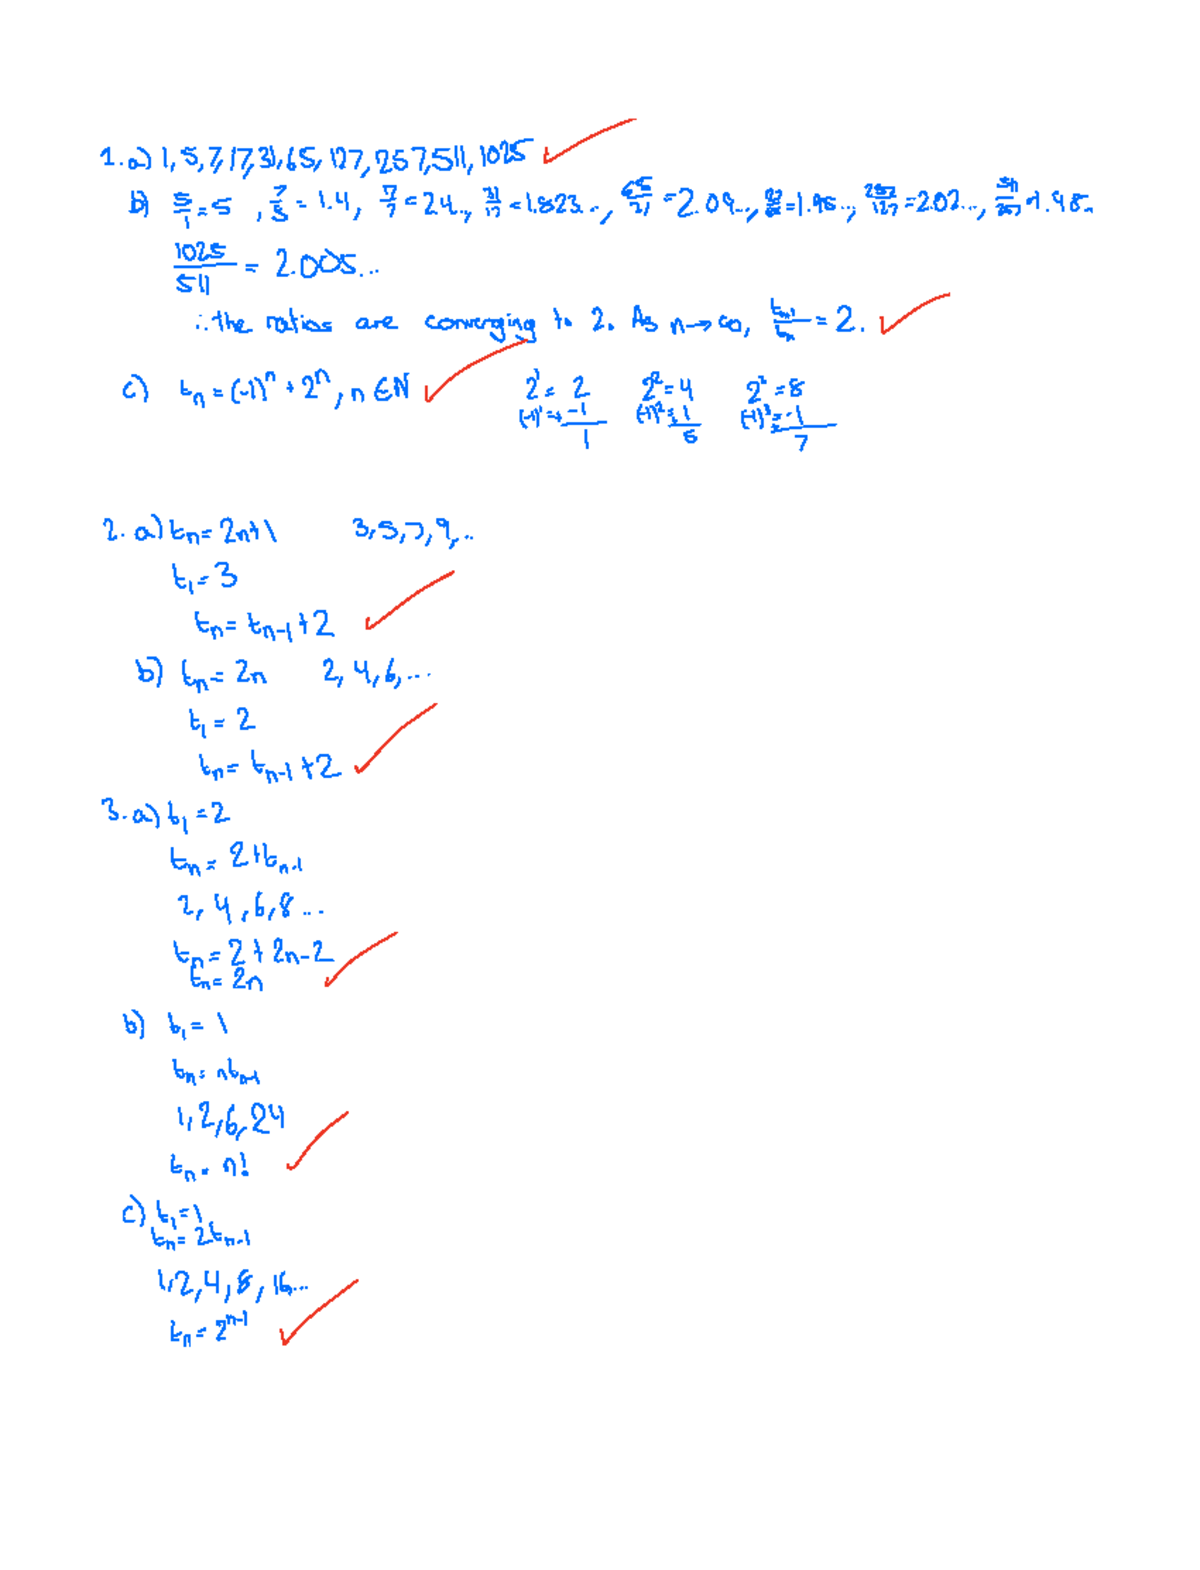 1. a) 1, 5, 7, 17, 31, 65, 127, 257, 511, 1025
b) 5/1 = 5, 7/5 = 1.4, 17/7 = 2.4..., 31/17 = 1.823..., 65/31 = 2.09..., 127/65 = 1.95..., 257/127 = 2.02..., 511/257 = 1.98...
1025/511 = 2.005...
∴ the ratios are converging to 2. As n→∞, = 2.
c) tn = (-1)^n + 2^n, n ∈ N 2^1 = 2 2^2 = 4 2^3 = 8
(-1)^1 = + -1 (-1)^2 = 1 (-1)^3 = -1
1 5 7
2. a) tn = 2n+1 3, 5, 7, 9, ..
t1 = 3
tn = tn-1 + 2
b) tn = 2n 2, 4, 6, ...
t1 = 2
tn = tn-1 + 2
3. a) t1 = 2
tn = 2 + tn-1
2, 4, 6, 8 ...
tn = 2 + 2n - 2
tn = 2n
b) t1 = 1
tn = ntn-1
1, 2, 6, 24
tn = n!
c) t1 = 1
tn = 2tn-1
1, 2, 4, 8, 16...
tn = 2^n-1